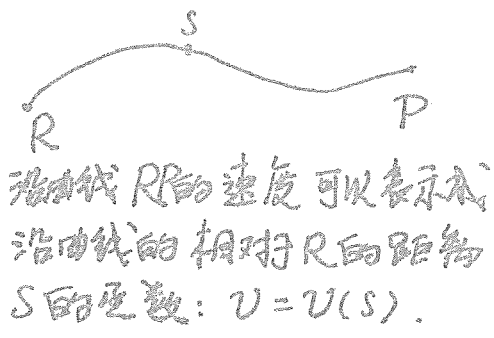 S
R
P
沿曲线RP的速度可以表示成
沿曲线的相对于R的距离
S的函数：v=v(s).